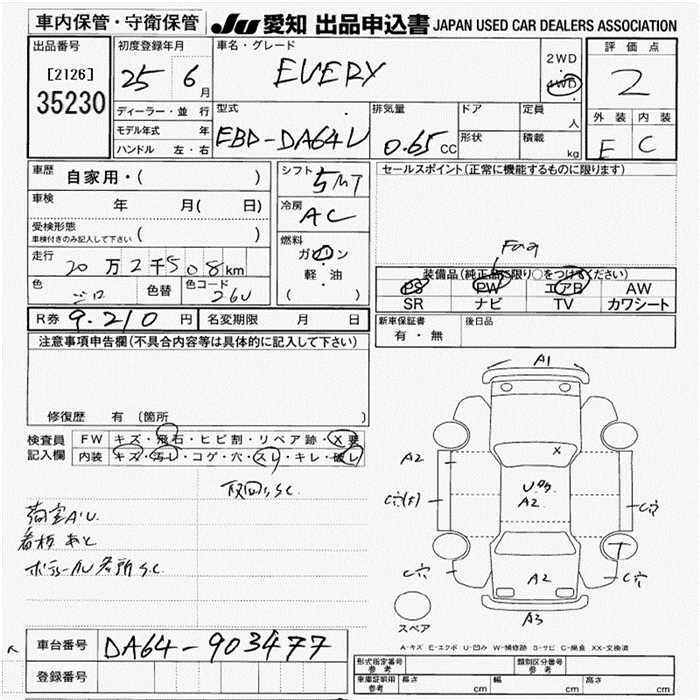 車内保管・守衛保管
JU 愛知 出品申込書 JAPAN USED CAR DEALERS ASSOCIATION
出品番号
[2126]
35230
初度登録年月
25 6月
車名・グレード
EVERY
2WD
4WD
評価点
2
外装 内装
E C
ディーラー・並行
モデル年式 年
ハンドル 左・右
型式
EBD-DA64V
排気量
0.65 CC
ドア
形状
定員
人
積載
kg
車歴
自家用・( )
車検
年 月( 日)
受検形態
車検付きのみ記入して下さい ( )
走行
20万2千508km
色
シロ
色替
色コード
26U
シフト
5MT
冷房
AC
燃料
ガソリン
軽・油
( )
セールスポイント(正常に機能するものに限ります)
装備品(純正品に限り○をつけてください)
PS PW エアB AW
SR ナビ TV カワシート
R券 9,210円 名変期限 月 日
新車保証書
有・無
後日品
注意事項申告欄(不具合内容等は具体的に記入して下さい)
修復歴 有(箇所
検査員
記入欄
FW キズ・飛石・ヒビ割・リペア跡・X要
内装 キズ・汚レ・コゲ・穴・スレ・キレ・破レ
取回りS.C.
荷室A.U.
看板あと
ボディー下廻各所S.C.
A1
A2
X
A2
C穴
C穴
C穴
A2
A3
スペア
A-キズ E-エクボ U-凹み W-補修跡 S-サビ C-腐食 XX-交換済
車台番号 DA64-903477
登録番号
形式指定番号
参考
類別区分番号
参考
車庫証明用
参考
長さ cm 幅 cm 高さ cm